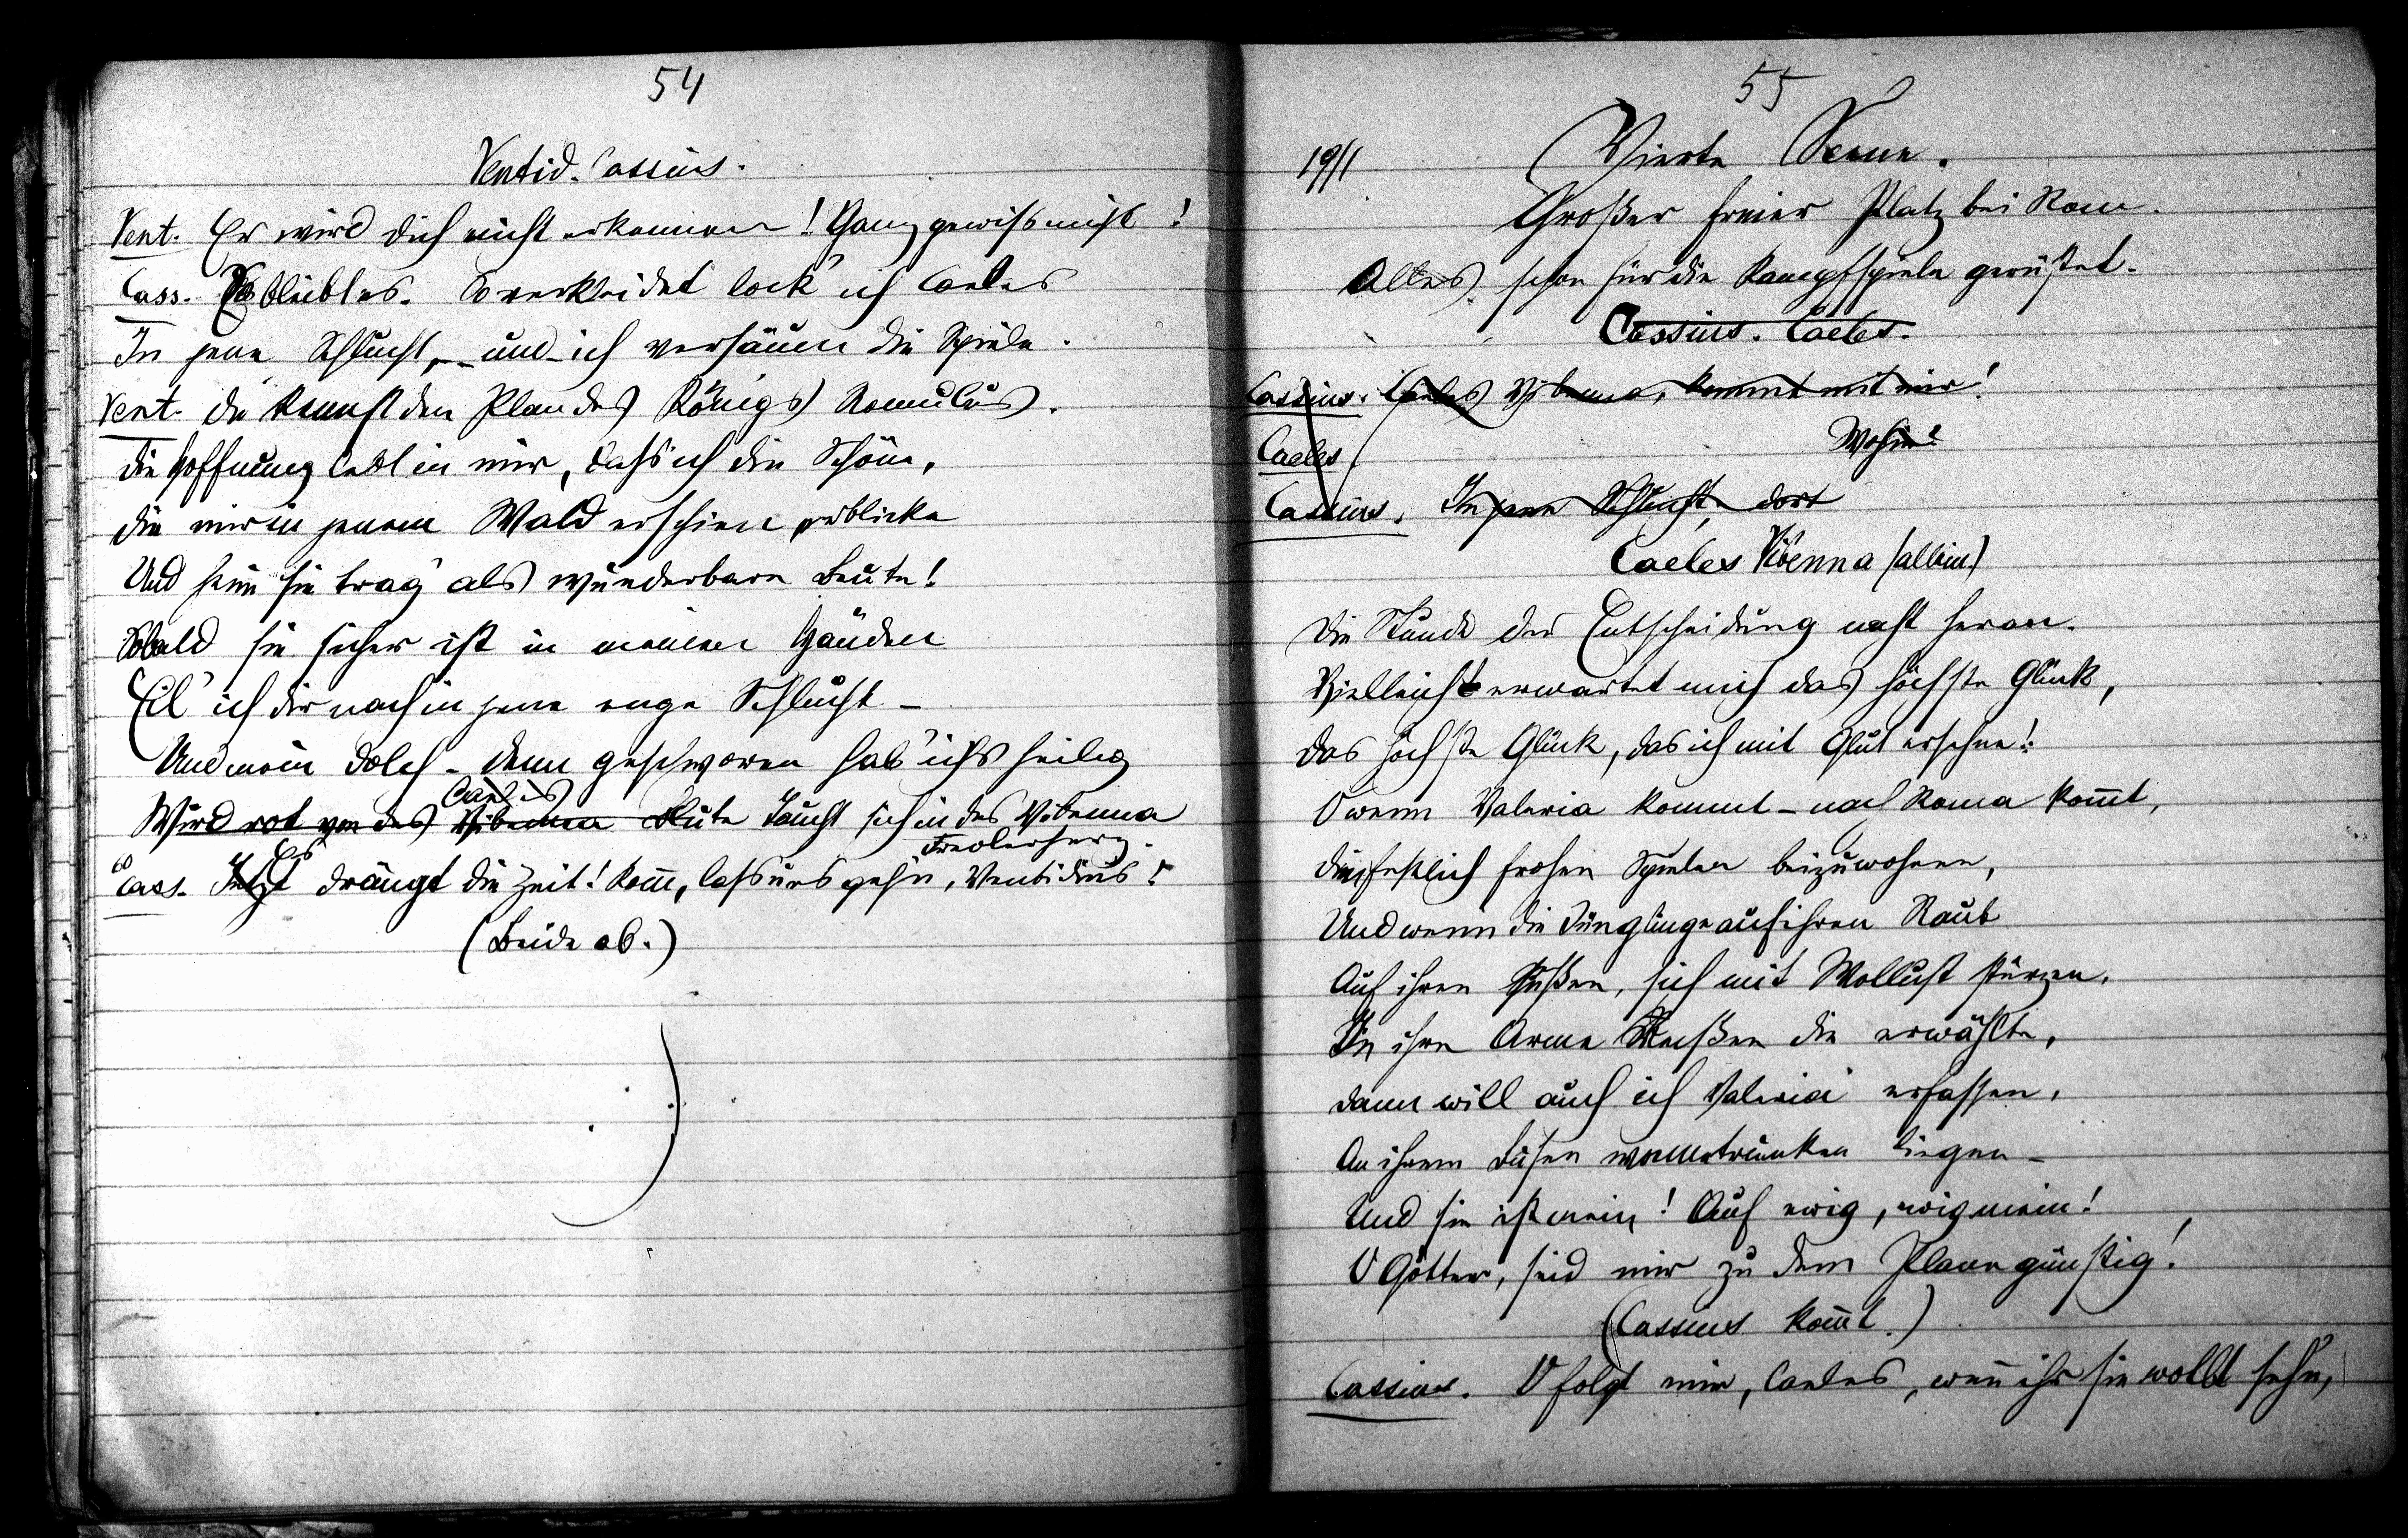 54
Ventid. Cassius.
Vent. Er wird dich nicht erkennen! Ganz gewiss nicht!
Cass. So bleibt es. So verkleidet lock' ich Caeles
In jene Schlucht, – und ich versäum die Spiele.
Vent. Du kennst den Plan des Königs Romulus.
Die Hoffnung lebt in mir, dass ich die Schöne,
Die mir in jenem Wald erschien erblicke
Und heim sie trag' als wunderbare Beute!
Sobald sie sicher ist in meinen Händen
Eil' ich dir nach in jene enge Schlucht –
Und mein Dolch – denn geschworen hab' ich's heilig
Caeles
Wird rot von des Vibenna Blute Taucht sich in des Vibenna
Frevlerherz.
Es
Cass. Jetzt drängt die Zeit! Kom̄, lass uns gehn, Ventidius!
(Beide ab.)
55
19/1
Vierte Scene.
Großer freier Platz bei Rom.
Alles schon für die Kampfspiele gerüstet.
Cassius. Caeles.
Cassius. Caeles Vibenna, kommt mit mir!
Caeles Wohin?
Cassius. In jene Schlucht, dort
Caeles Vibenna (allein.)
Die Stunde der Entscheidung naht heran.
Vielleicht erwartet mich das höchste Glück,
Das höchste Glück, das ich mit Glut ersehne!
O wenn Valeria kommt – nach Roma kom̄t,
Den festlich frohen Spielen beizuwohnen,
Und wenn die Jünglinge auf ihren Raub
Auf ihren süßen, sich mit Wollust stürzen,
In ihre Arme die erwählte,
Dann will auch ich Valeria erfassen,
An ihrem Busen wonnetrunken liegen –
Und sie ist mein! Auf ewig, ewig mein!
O Götter, seid mir zu dem Plane günstig!
(Cassius kom̄t.)
Cassius. O folgt mir, Caeles, wen̄ ihr sie wollt sehn,